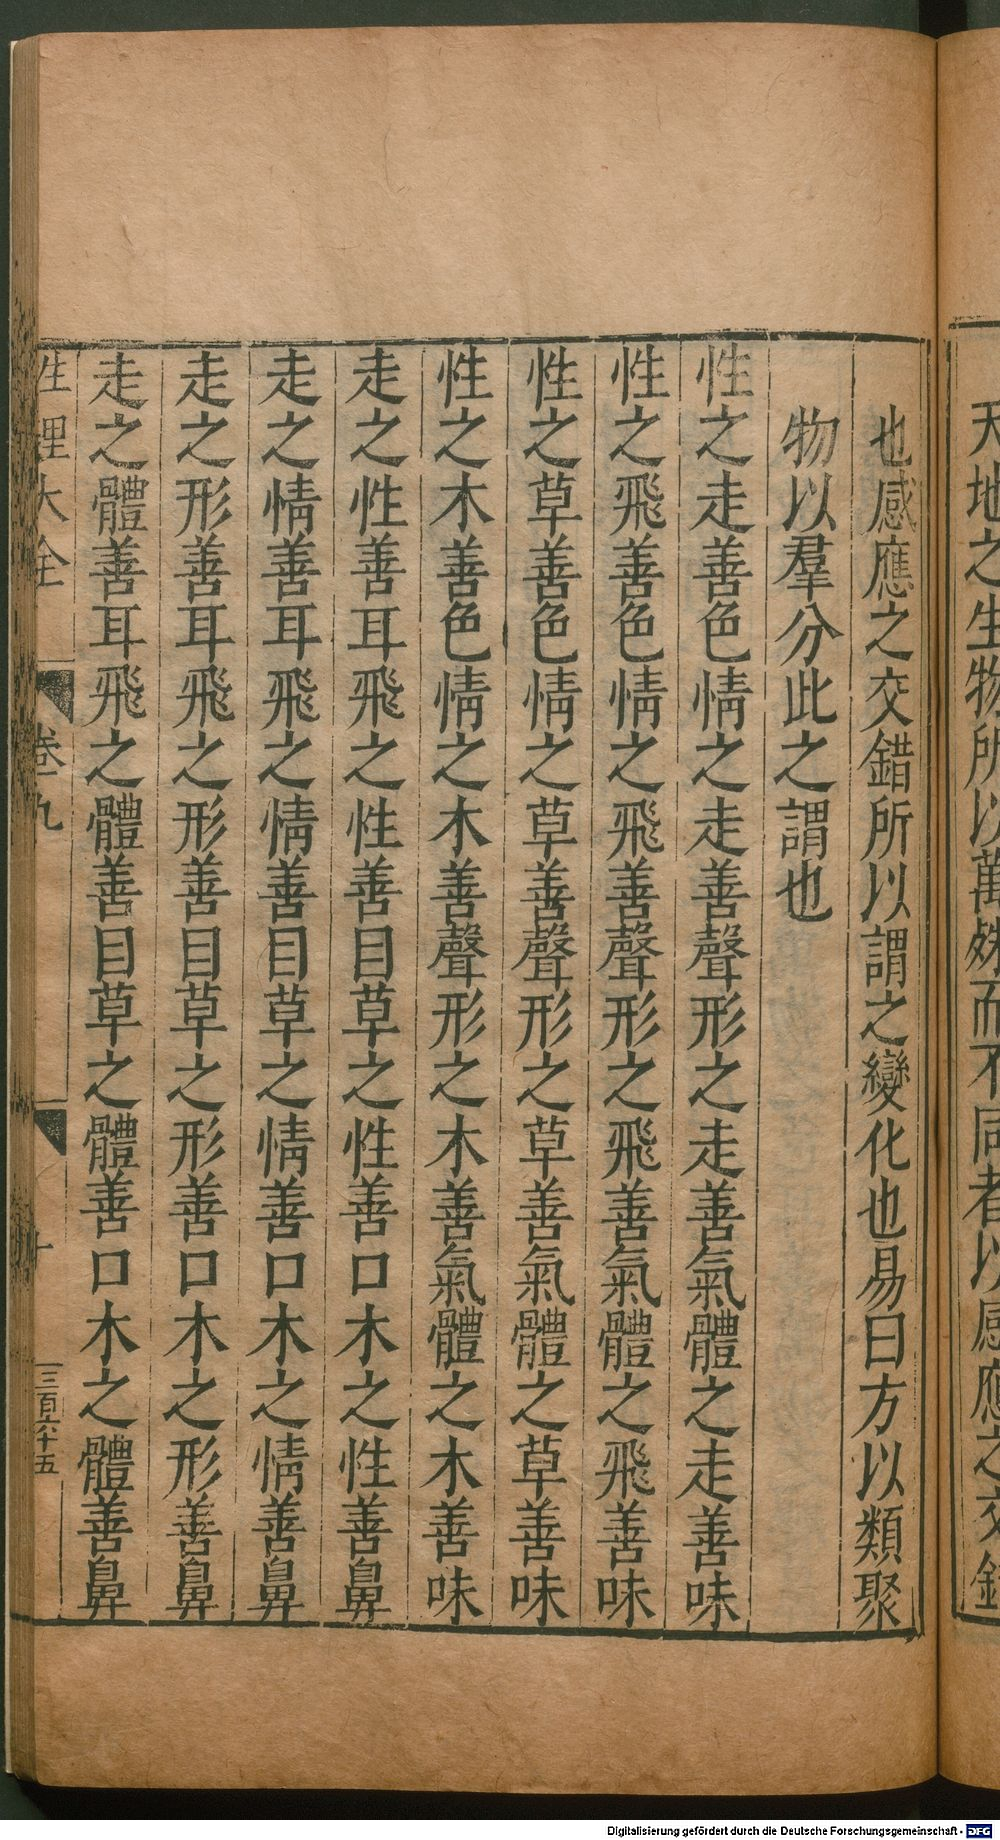 天地之生物所以萬殊而不同者以感應之交錯
也感應之交錯所以謂之變化也易曰方以類聚
物以羣分此之謂也
性之走善色情之走善聲形之走善氣體之走善味
性之飛善色情之飛善聲形之飛善氣體之飛善味
性之草善色情之草善聲形之草善氣體之草善味
性之木善色情之木善聲形之木善氣體之木善味
走之性善耳飛之性善目草之性善口木之性善鼻
走之情善耳飛之情善目草之情善口木之情善鼻
走之形善耳飛之形善目草之形善口木之形善鼻
走之體善耳飛之體善目草之體善口木之體善鼻
性理大全 卷九 十 三百六十五
Digitalisierung gefördert durch die Deutsche Forschungsgemeinschaft - DFG